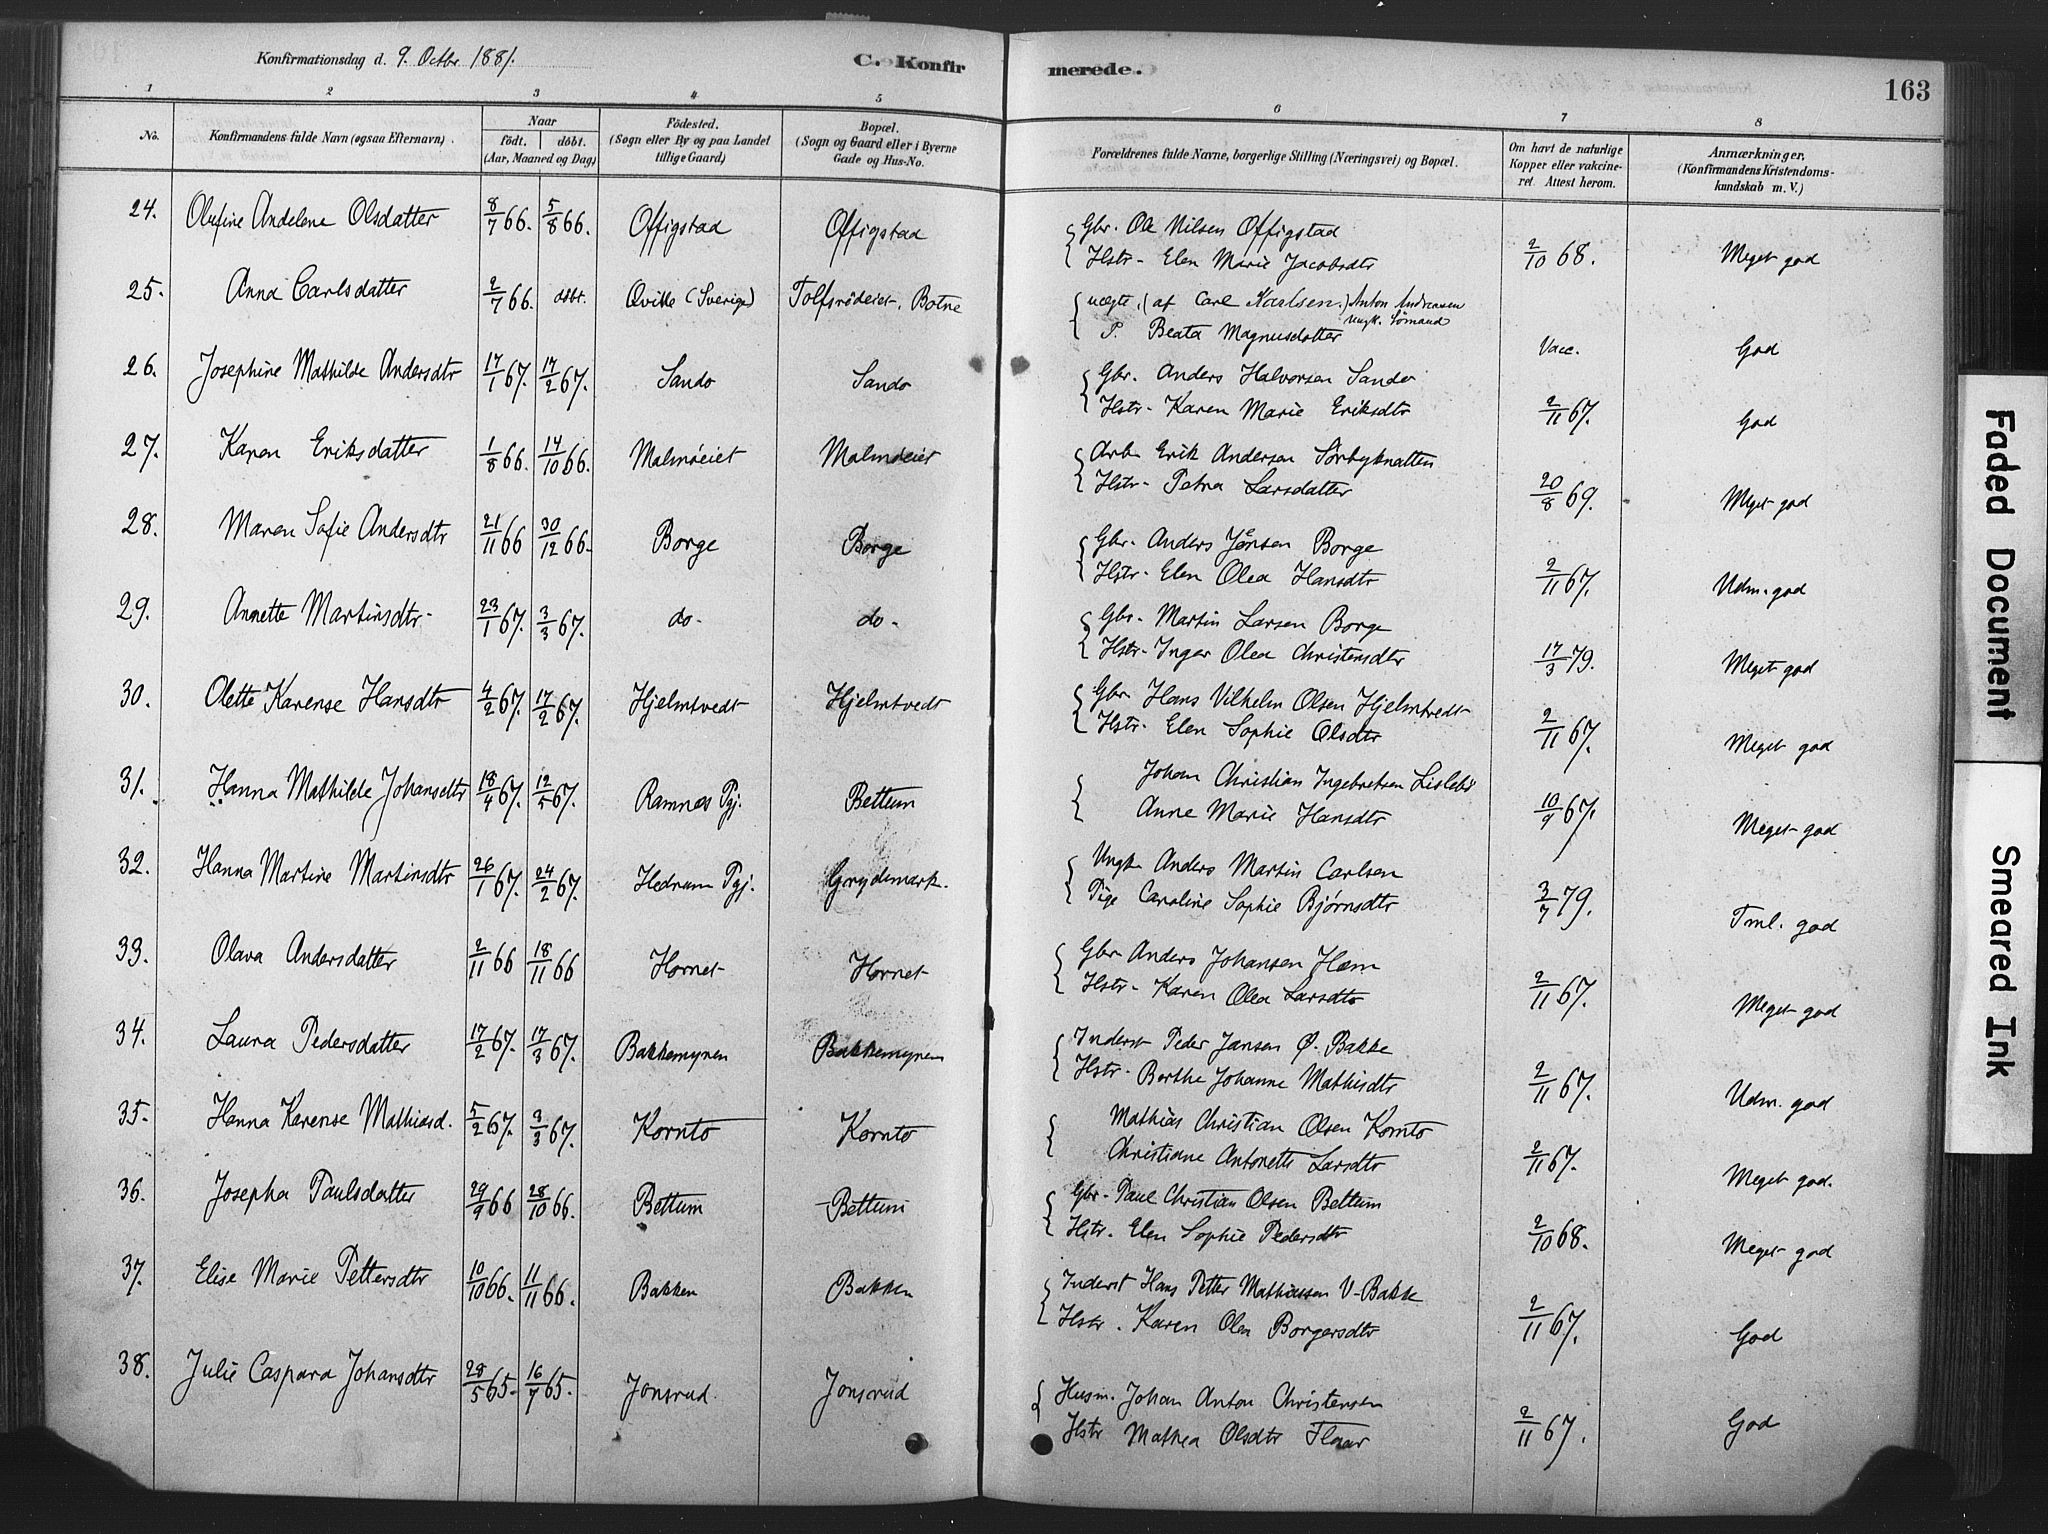 Konfirmationsdag d. 9. Octbr 1881.
C. Konfirmerede.
163
1 2 3 4 5 6 7 8
No.
Konfirmandens fulde Navn (ogsaa Efternavn).
Naar
födt. döbt.
(Aar, Maaned og Dag)
Födested.
(Sogn eller By og paa Landet
tillige Gaard)
Bopæl.
(Sogn og Gaard eller i Byerne
Gade og Hus-No.
Forældrenes fulde Navne, borgerlige Stilling (Næringsvei) og Bopæl.
Om havt de naturlige
Kopper eller vakcine-
ret Attest herom.
Anmærkninger,
(Konfirmandens Kristendoms-
kundskab m. V.)
24. Olufine Andelene Olsdatter 8/7 66. 5/8 66. Offigstad Offigstad Gbr. Ole Nilsen Offigstad
Hstr- Elen Marie Jacobsdtr 2/10 68. Meget god
25. Anna Carlsdatter 2/7 66. døbt. Qville (Sverige) Tolfsrødeiet, Botne uægte, (af Carl Karlsen,) Anton Andreassen
P. Beata Magnusdatter ungk. Sømand Vacc. God
26. Josephine Mathilde Andersdtr 17/1 67. 17/2 67. Sando Sando Gbr. Anders Halvorsen Sando
Hstr- Karen Marie Eriksdtr 2/11 67. God
27. Karen Eriksdatter 1/8 66. 14/10 66. Malmøeiet Malmøeiet Arb. Erik Andersen Sørbyknatten
Hstr- Petra Larsdatter 20/8 69. Meget god
28. Maren Sofie Andersdtr 21/11 66 30/12 66. Borge Borge Gbr. Anders Jensen Borge
Hstr- Elen Olea Hansdtr 2/11 67. Udm. god
29. Annette Martinsdtr- 23/1 67. 3/3 67. do- do- Gbr. Martin Larsen Borge
Hstr- Inger Olea Christensdtr 17/3 79. Meget god
30. Olette Karense Hansdtr 4/2 67. 17/2 67. Hjelmtvedt Hjelmtvedt Gbr Hans Vilhelm Olsen Hjelmtvedt
Hstr- Elen Sophie Olsdtr 2/11 67. Meget god
31. Hanna Mathilde Johansdtr 18/4 67. 12/5 67. Ramnæs Pgj. Bettum Johan Christian Ingebretsen Lislebø
Anne Marie Hansdtr 10/9 67. Meget god
32. Hanna Martine Martinsdtr 26/1 67. 24/2 67. Hedrum Pgj. Grydemark. Ungk. Anders Martin Carlsen
Pige Caroline Sophie Bjørnsdtr 3/7 79. Tml. god
33. Olava Andersdatter 2/11 66 18/11 66 Hornet Hornet Gbr Anders Johansen Hæm
Hstr- Karen Olea Larsdtr 2/11 67. Meget god
34. Laura Pedersdatter 17/2 67. 17/3 67. Bakkemyren Bakkemyren Inderst Peder Jansen Ø. Bakke
Hstr- Berthe Johanne Mathisdtr 2/11 67. Udm. god
35. Hanna Karense Mathiasd. 5/2 67. 3/3 67. Kornto Kornto Mathias Christian Olsen Kornto
Christiane Antonette Larsdtr 2/11 67. Meget god.
36. Josepha Paulsdatter 29/9 66 28/10 66. Bettum Bettum Gbr- Paul Christian Olsen Bettum
Hstr. Elen Sophie Pedersdtr 2/10 68. Meget god
37. Elise Marie Pettersdtr 10/10 66. 11/11 66. Bakken Bakken Inderst Hans Petter Mathiassen V-Bakke
Hstr. Karen Olea Borgersdtr 2/11 67. God
38. Julie Caspara Johansdtr 28/5 65- 16/7 65. Jonsrud. Jonsrud Husm. Johan Anton Christensen
Hstr Mathea Olsdtr Haar 2/11 67. God
Faded Document
Smeared Ink